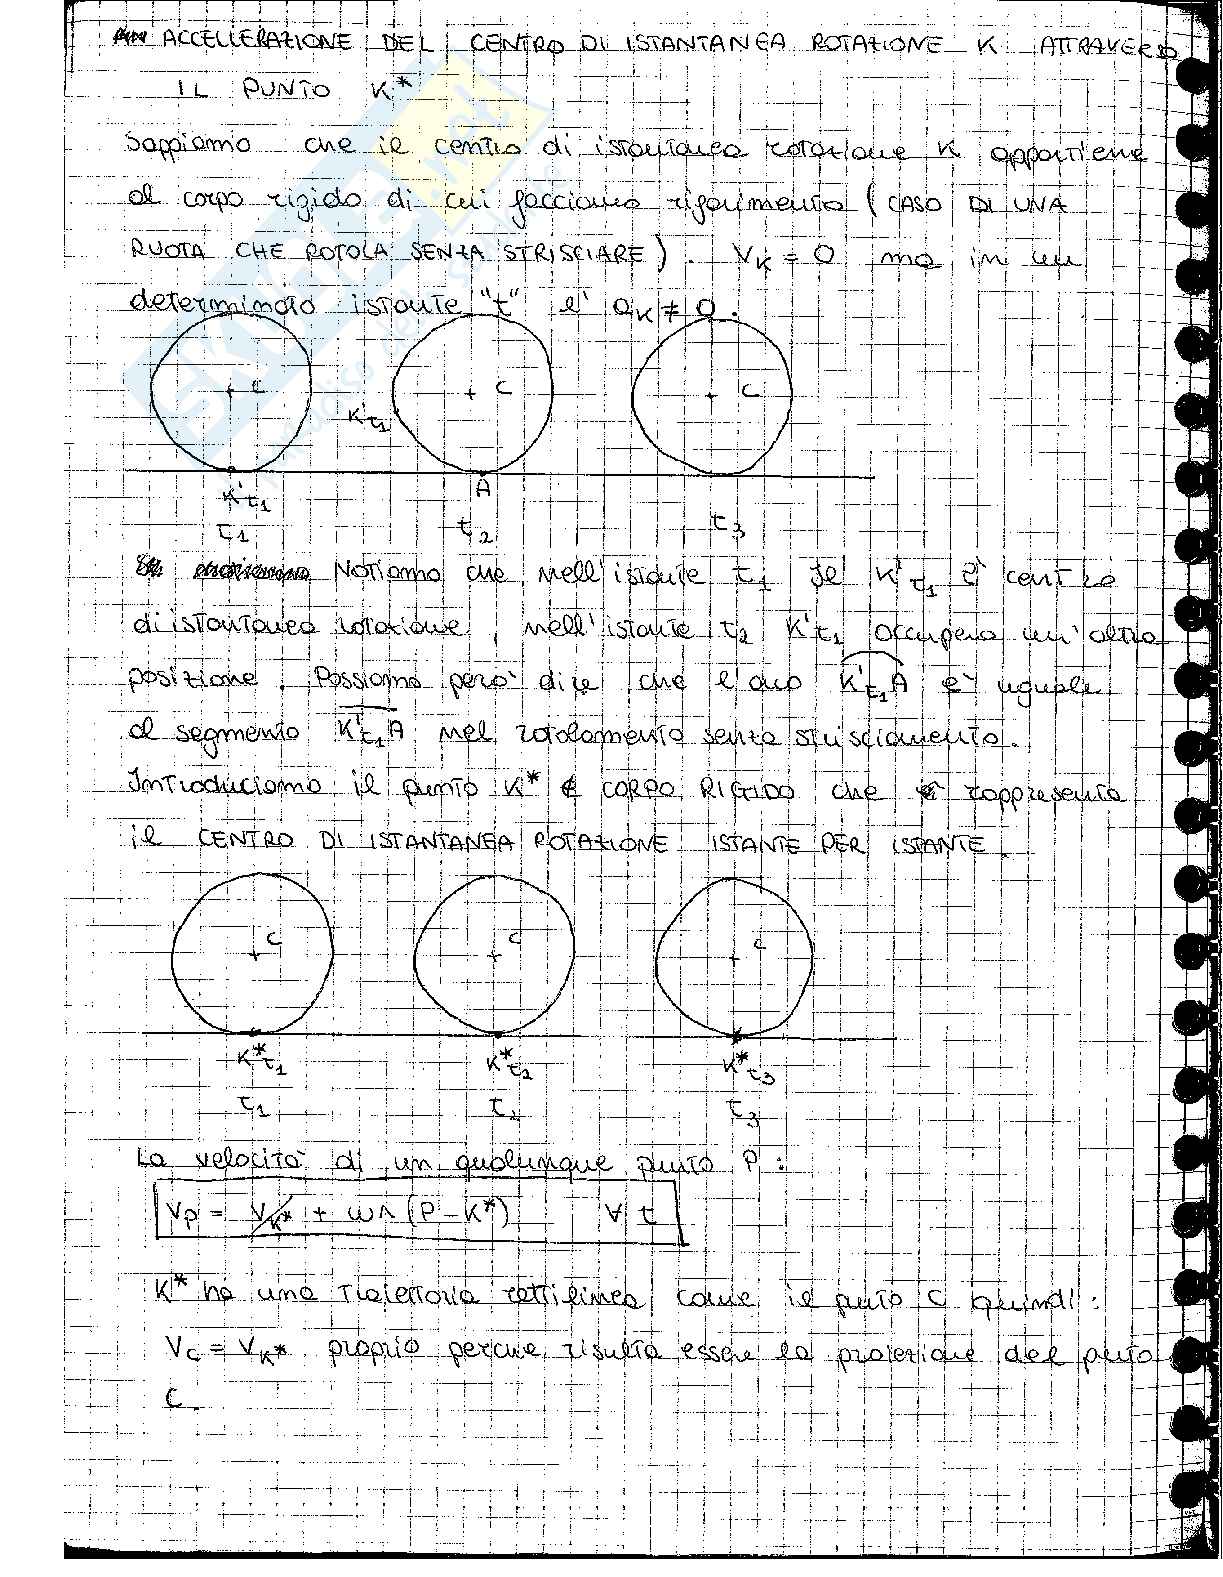 ACCELLERAZIONE DEL CENTRO DI ISTANTANEA ROTAZIONE K ATTRAVERSO
IL PUNTO K*
Sappiamo che il centro di istantanea rotazione K appartiene
al corpo rigido di cui facciamo riferimento (CASO DI UNA
RUOTA CHE ROTOLA SENZA STRISCIARE). VK = 0 ma in un
determinato istante "t" e' aK ≠ 0.
C C C
K't1
K't1 A
t1 t2 t3
Notiamo che nell'istante t1 se K't1 è centro
di istantanea rotazione, nell'istante t2 K't1 occupera un'altra
posizione. Possiamo pero' dire che l'arco K't1A e' uguale
al segmento K't1A nel rotolamento senza strisciamento.
Introduciamo il punto K* ∉ CORPO RIGIDO che rappresenta
il CENTRO DI ISTANTANEA ROTAZIONE ISTANTE PER ISTANTE.
C C C
K*t1 K*t2 K*t3
t1 t2 t3
La velocità di un qualunque punto P:
VP = VK* + ω∧(P-K*) ∀ t
K* ha una traiettoria rettilinea come il punto C quindi:
Vc = VK* proprio perche risulta essere la proiezione del punto
C.